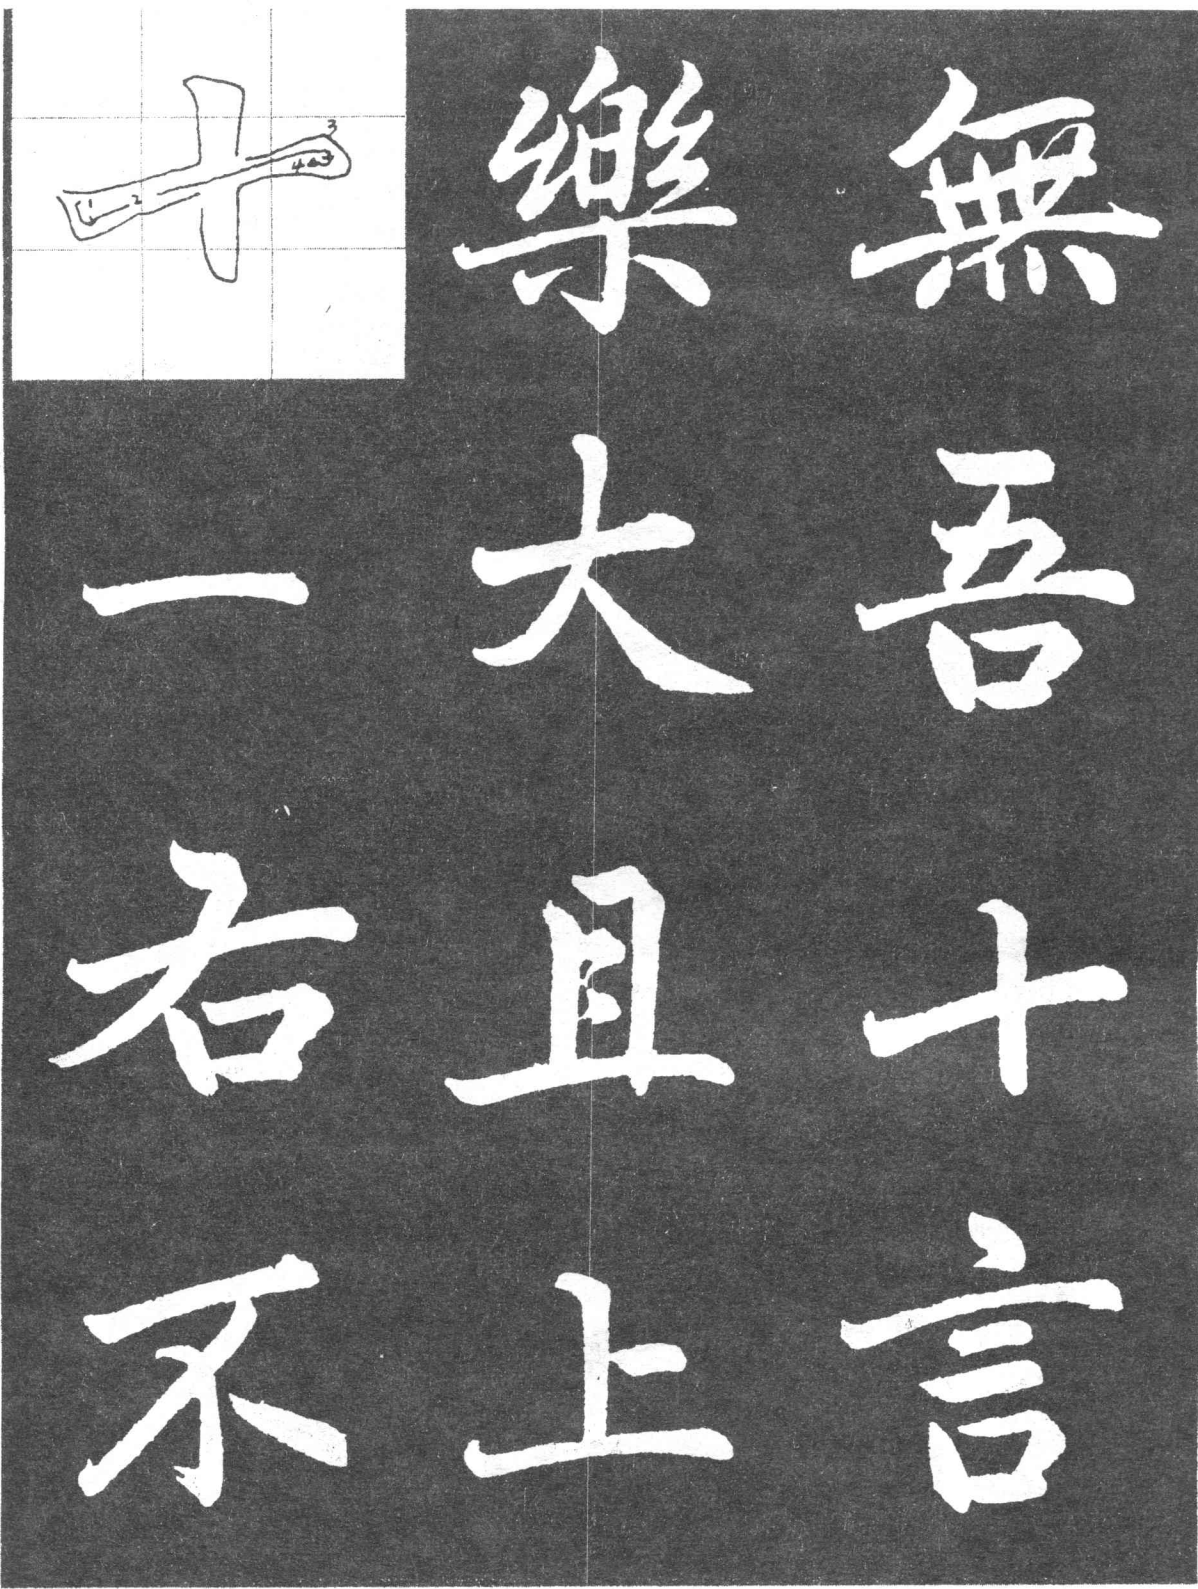 無吾十言
樂大且上
十一右不